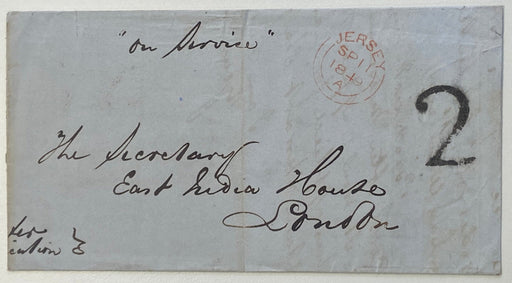 "On Service"
JERSEY
SP 1
A
2
The Secretary
East India House
London